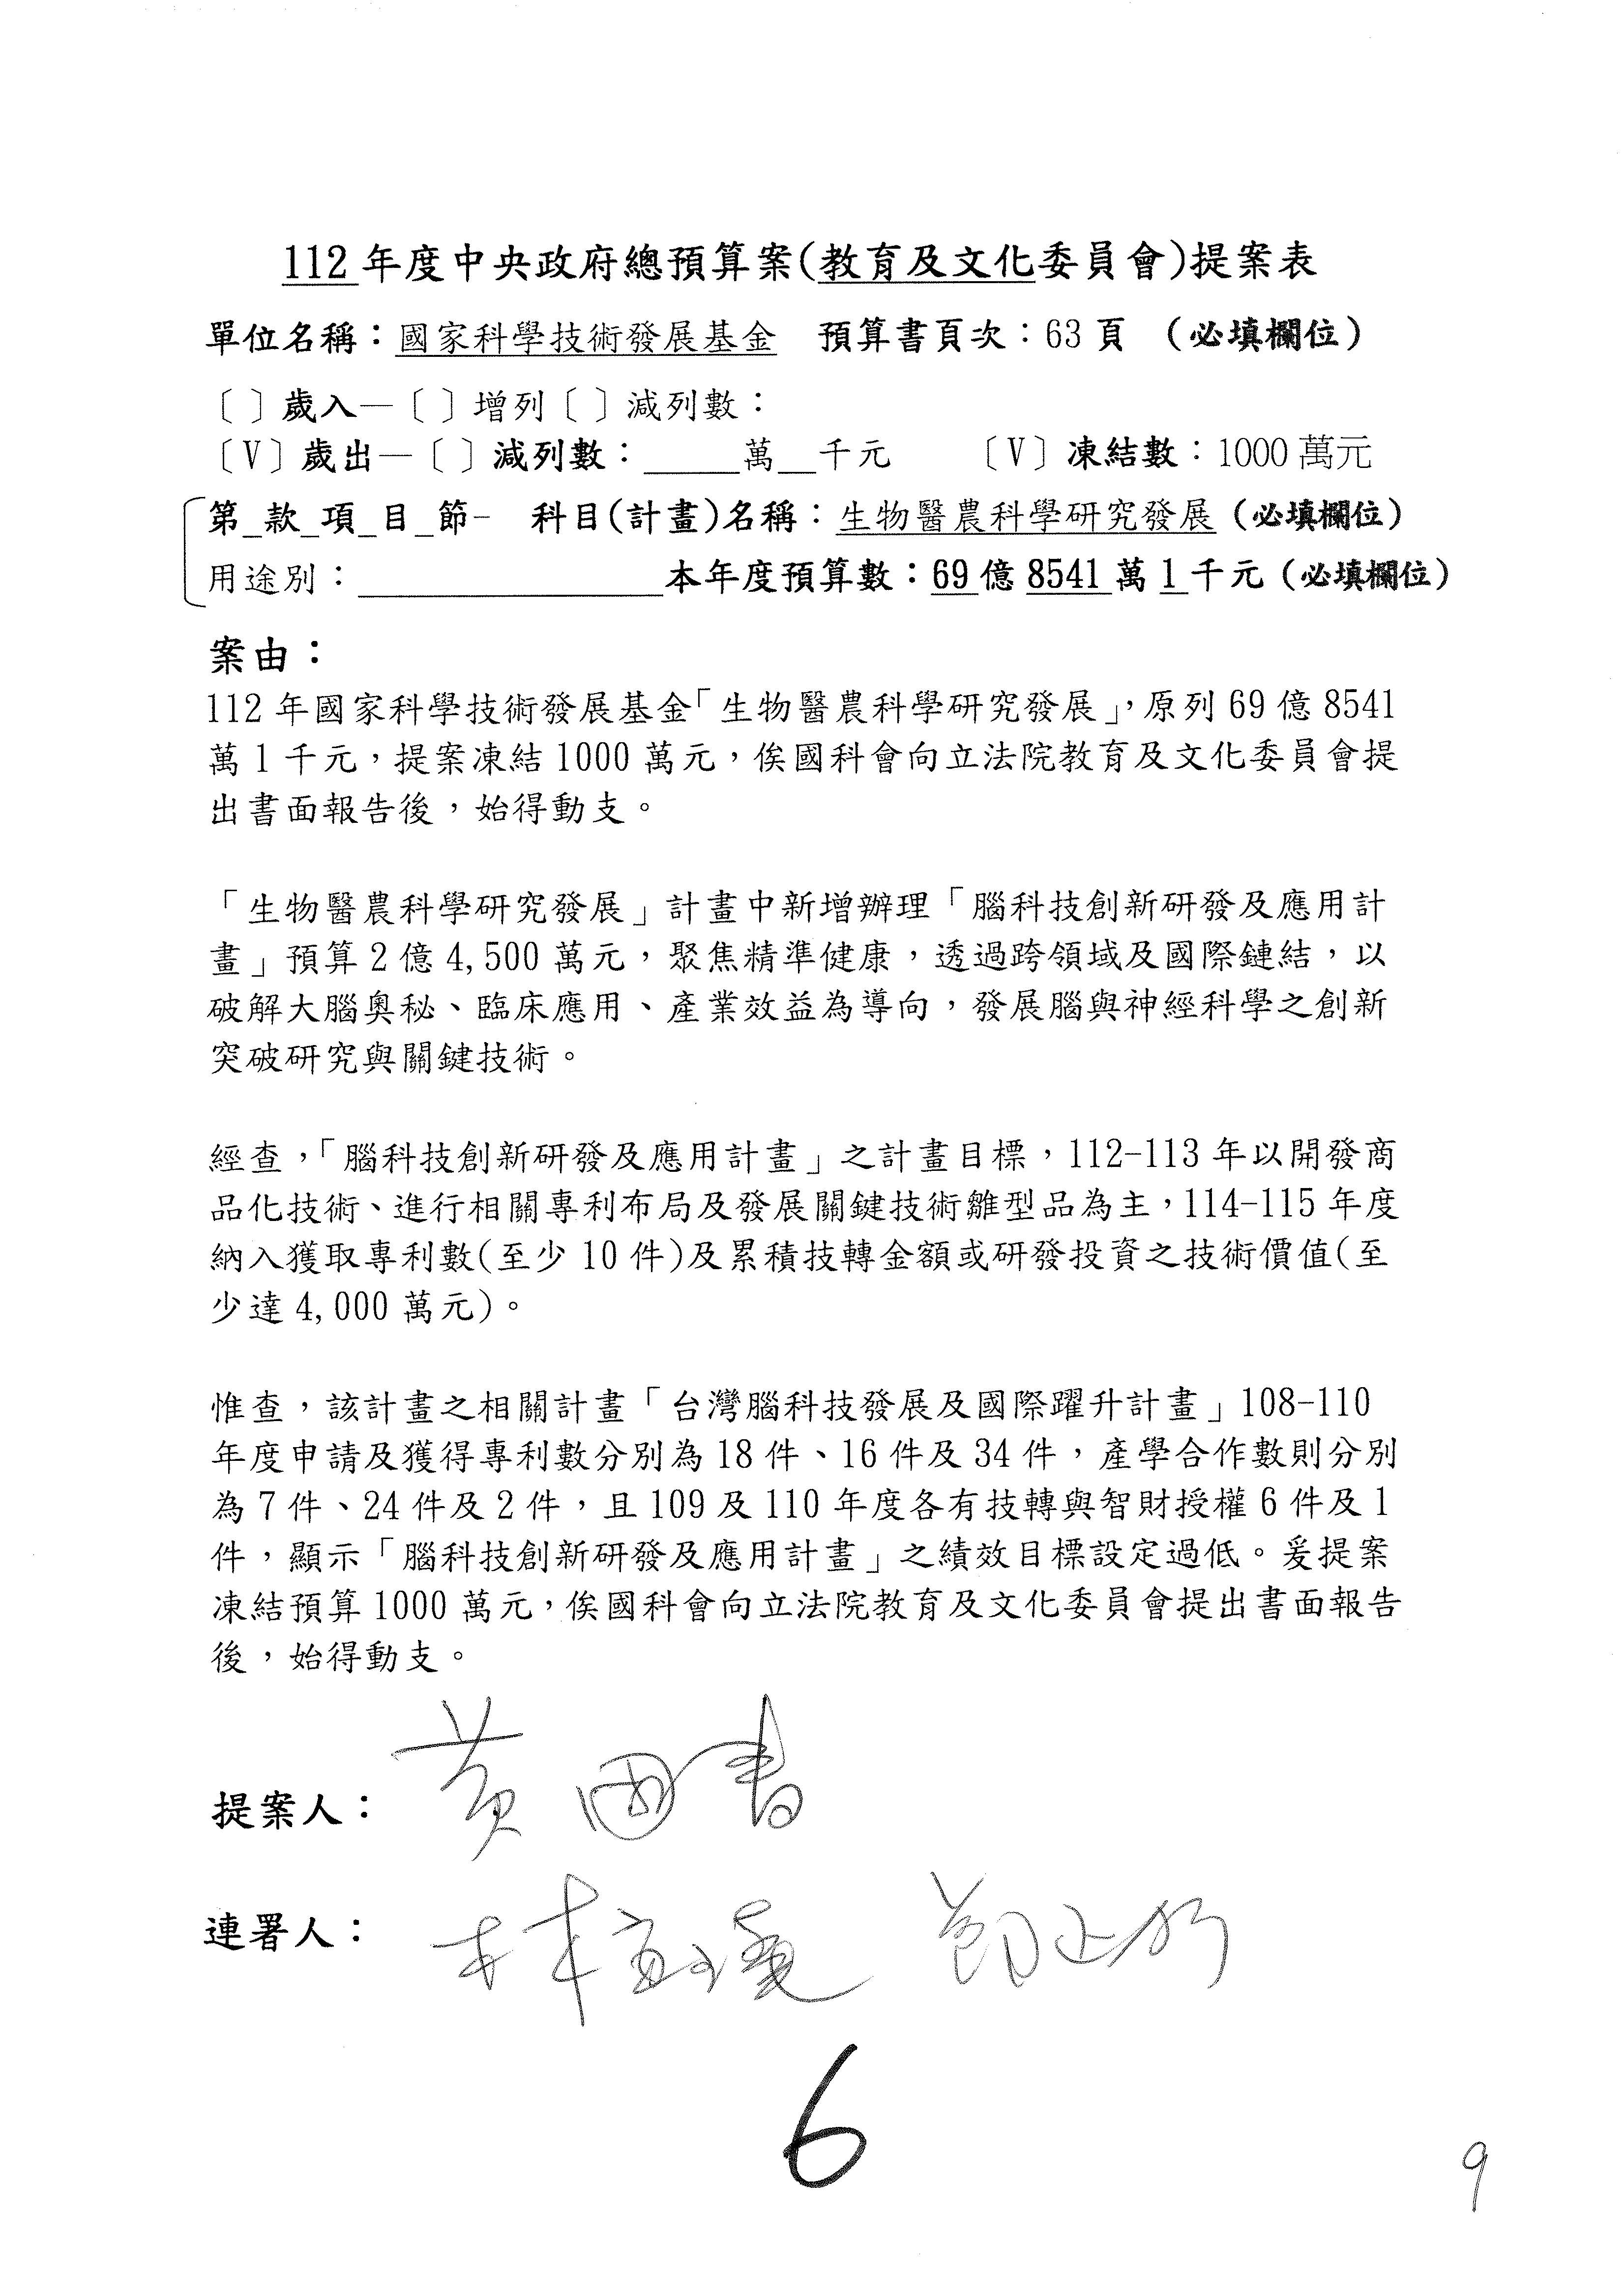 112年度中央政府總預算案(教育及文化委員會)提案表
單位名稱：國家科學技術發展基金　預算書頁次：63頁　(必填欄位)
〔 〕歲入—〔 〕增列〔 〕減列數：
〔V〕歲出—〔 〕減列數：_____萬__千元　〔V〕凍結數：1000萬元
第_款_項_目_節-　科目(計畫)名稱：生物醫農科學研究發展(必填欄位)
用途別：________________本年度預算數：69億8541萬1千元(必填欄位)
案由：
112年國家科學技術發展基金「生物醫農科學研究發展」，原列69億8541
萬1千元，提案凍結1000萬元，俟國科會向立法院教育及文化委員會提
出書面報告後，始得動支。
「生物醫農科學研究發展」計畫中新增辦理「腦科技創新研發及應用計
畫」預算2億4,500萬元，聚焦精準健康，透過跨領域及國際鏈結，以
破解大腦奧秘、臨床應用、產業效益為導向，發展腦與神經科學之創新
突破研究與關鍵技術。
經查，「腦科技創新研發及應用計畫」之計畫目標，112-113年以開發商
品化技術、進行相關專利布局及發展關鍵技術雛型品為主，114-115年度
納入獲取專利數(至少10件)及累積技轉金額或研發投資之技術價值(至
少達4,000萬元)。
惟查，該計畫之相關計畫「台灣腦科技發展及國際躍升計畫」108-110
年度申請及獲得專利數分別為18件、16件及34件，產學合作數則分別
為7件、24件及2件，且109及110年度各有技轉與智財授權6件及1
件，顯示「腦科技創新研發及應用計畫」之績效目標設定過低。爰提案
凍結預算1000萬元，俟國科會向立法院教育及文化委員會提出書面報告
後，始得動支。
提案人：黃國書
連署人：林宜瑾
6
9